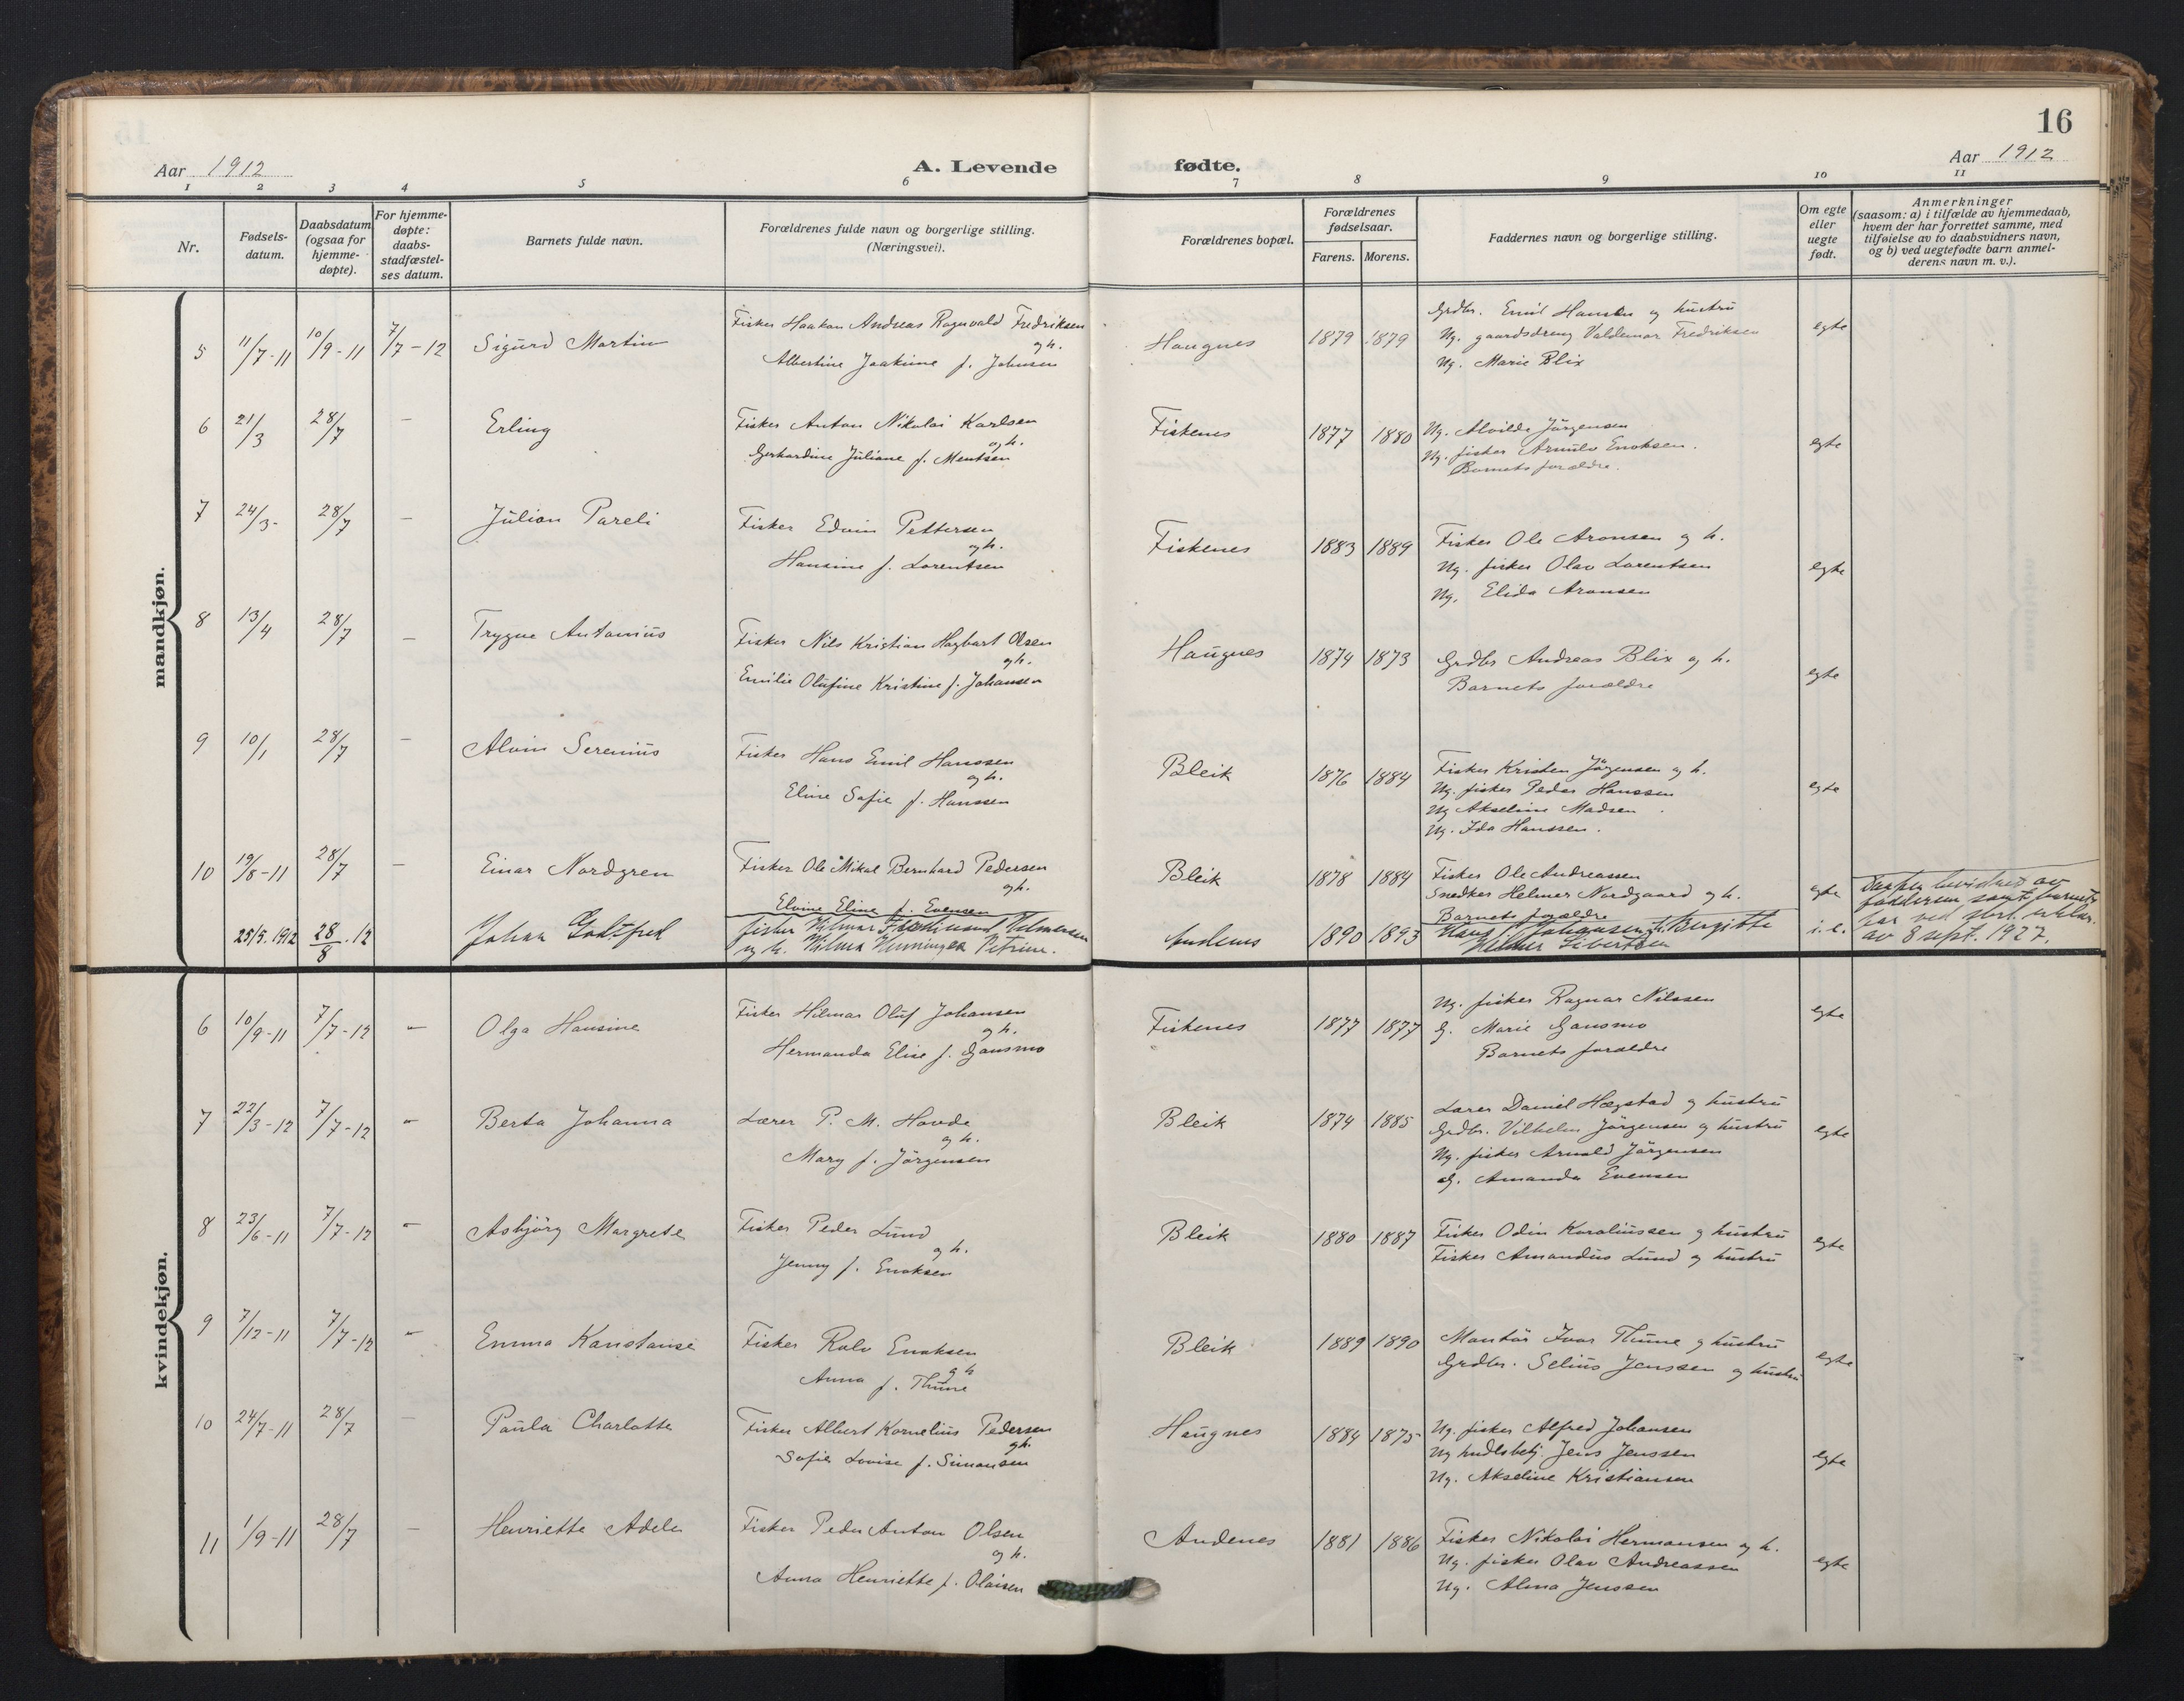 16
Aar 1912
A. Levende fødte.
Aar 1912
1 2 3 4 5 6 7 8 9 10 11
Nr.
Fødsels-
datum.
Daabsdatum
(ogsaa for
hjemme-
døpte).
For hjemme-
døpte:
daabs-
stadfæstel-
ses datum.
Barnets fulde navn.
Forældrenes fulde navn og borgerlige stilling.
(Næringsvei).
Forældrenes bopæl.
Forældrenes
fødselsaar.
Farens. Morens.
Faddernes navn og borgerlige stilling.
Om egte
eller
uegte
født.
Anmerkninger
(saasom: a) i tilfælde av hjemmedaab,
hvem der har forrettet samme, med
tilføielse av to daabsvidners navn,
og b) ved uegtefødte barn anmel-
derens navn m. v.).
mandkjøn.
5 11/7-11 10/9-11 7/7-12 Sigurd Martin
Fisker Haakon Andreas Ragnvald Fredriksen
og h.
Albertine Joakime f. Johnsen
Haugnes 1879 1879
Grdbr. Emil Hansen og hustru
Ug. gaardsdreng Valdemar Fredriksen
Ug. Marie Blix
egte
6 21/3 28/7 – Erling
Fisker Anton Nikolai Karlsen
og h.
Gerhardine Juliane f. Mentsen
Fiskenes 1877 1880
Ug. Alvilde Jörgensen
Ug. fisker Arnulv Enoksen.
Barnets forældre.
egte
7 24/3- 28/7 – Julian Pareli
Fisker Edvin Pettersen
og h.
Hansine f. Lorentsen
Fiskenes 1883 1889
Fisker Ole Aronsen og h.
Ug. fisker Olav Lorentsen
Ug. Elida Aronsen
egte
8 13/4 28/7 – Trygve Antonius
Fisker Nils Kristian Hagbart Olsen
og h.
Emilie Olufine Kristine f. Johansen
Haugnes 1874 1873
Grdbr Andreas Blix og h.
Barnets forældre
egte
9 10/1 28/7 – Alvin Serenius
Fisker Hans Emil Hanssen
og h.
Eline Sofie f. Hanssen
Bleik 1876 1884
Fisker Kristen Jörgensen og h.
Ug. fisker Peder Hanssen
Ug Akseline Madsen
Ug. Ida Hanssen.
egte
10 19/8-11 28/7 – Einar Nordgren
Fisker Ole Mikal Bernhard Pedersen
og h.
Elvine Eline f. Evensen
Bleik 1878 1884
Fisker Ole Andreassen
Snedker Helmer Nordgaard og h.
Barnets forældre
egte
25/5. 1912 28/8.12 Johan Godtfred
fisker Hilmar Ferdinand Helmersen
og h. Hilma Henningea Petrine.
Andenes 1890 1893
Hans Johansen, Bergitte
Helmer Sivertsen
i. e.
Daaben bevidnet av
fadderen samt barnets
far ved skrl. erklær.
av 8 sept. 1927.
kvindekjøn.
6 10/9-11 7/7-12 – Olga Hansine
Fisker Hilmar Oluf Johansen
og h.
Hermanda Elise f. Gausmo
Fiskenes 1877 1877
Ug. fisker Ragnar Nilssen
G. Marie Gausmo
Barnets forældre
egte
7 22/3-12 7/7-12 – Berta Johanna
Lærer P. M. Hovde
og h.
Mary f. Jörgensen
Bleik 1874 1885
Lærer Daniel Hegstad og hustru
Grdbr. Vilhelm Jörgensen og hustru
Ug. fisker Arnold Jörgensen
G. Amanda Evensen
egte
8 23/6-11 7/7-12 – Asbjörg Margrete
Fisker Peder Lund
og h.
Jenny f. Enoksen
Bleik 1880 1887
Fisker Odin Karoliussen og hustru
Fisker Amandus Lund og hustru
egte
9 7/12-11 7/7-12 – Emma Konstanse
Fisker Rolv Enoksen
og h
Anna f. Thune
Bleik 1889 1890
Montör Ivar Thune og hustru
Grdbr. Selius Jenssen og hustru
egte
10 24/7-11 28/7 – Paula Charlotte
Fisker Albert Kornelius Pedersen
og h.
Sofie Lovise f. Simonsen
Haugnes 1884 1875
Ug. fisker Alfred Johansen
Ug hndlsbetj. Jens Jenssen
Ug. Akseline Kristiansen
egte
11 1/9-11 28/7 – Henriette Adele
Fisker Peder Anton Olsen
og h.
Anna Henriette f. Olaisen
Andenes 1881 1886
Fisker Nikolai Hermansen og h.
Ug. fisker Olav Andreassen
Ug. Alma Jenssen
egte